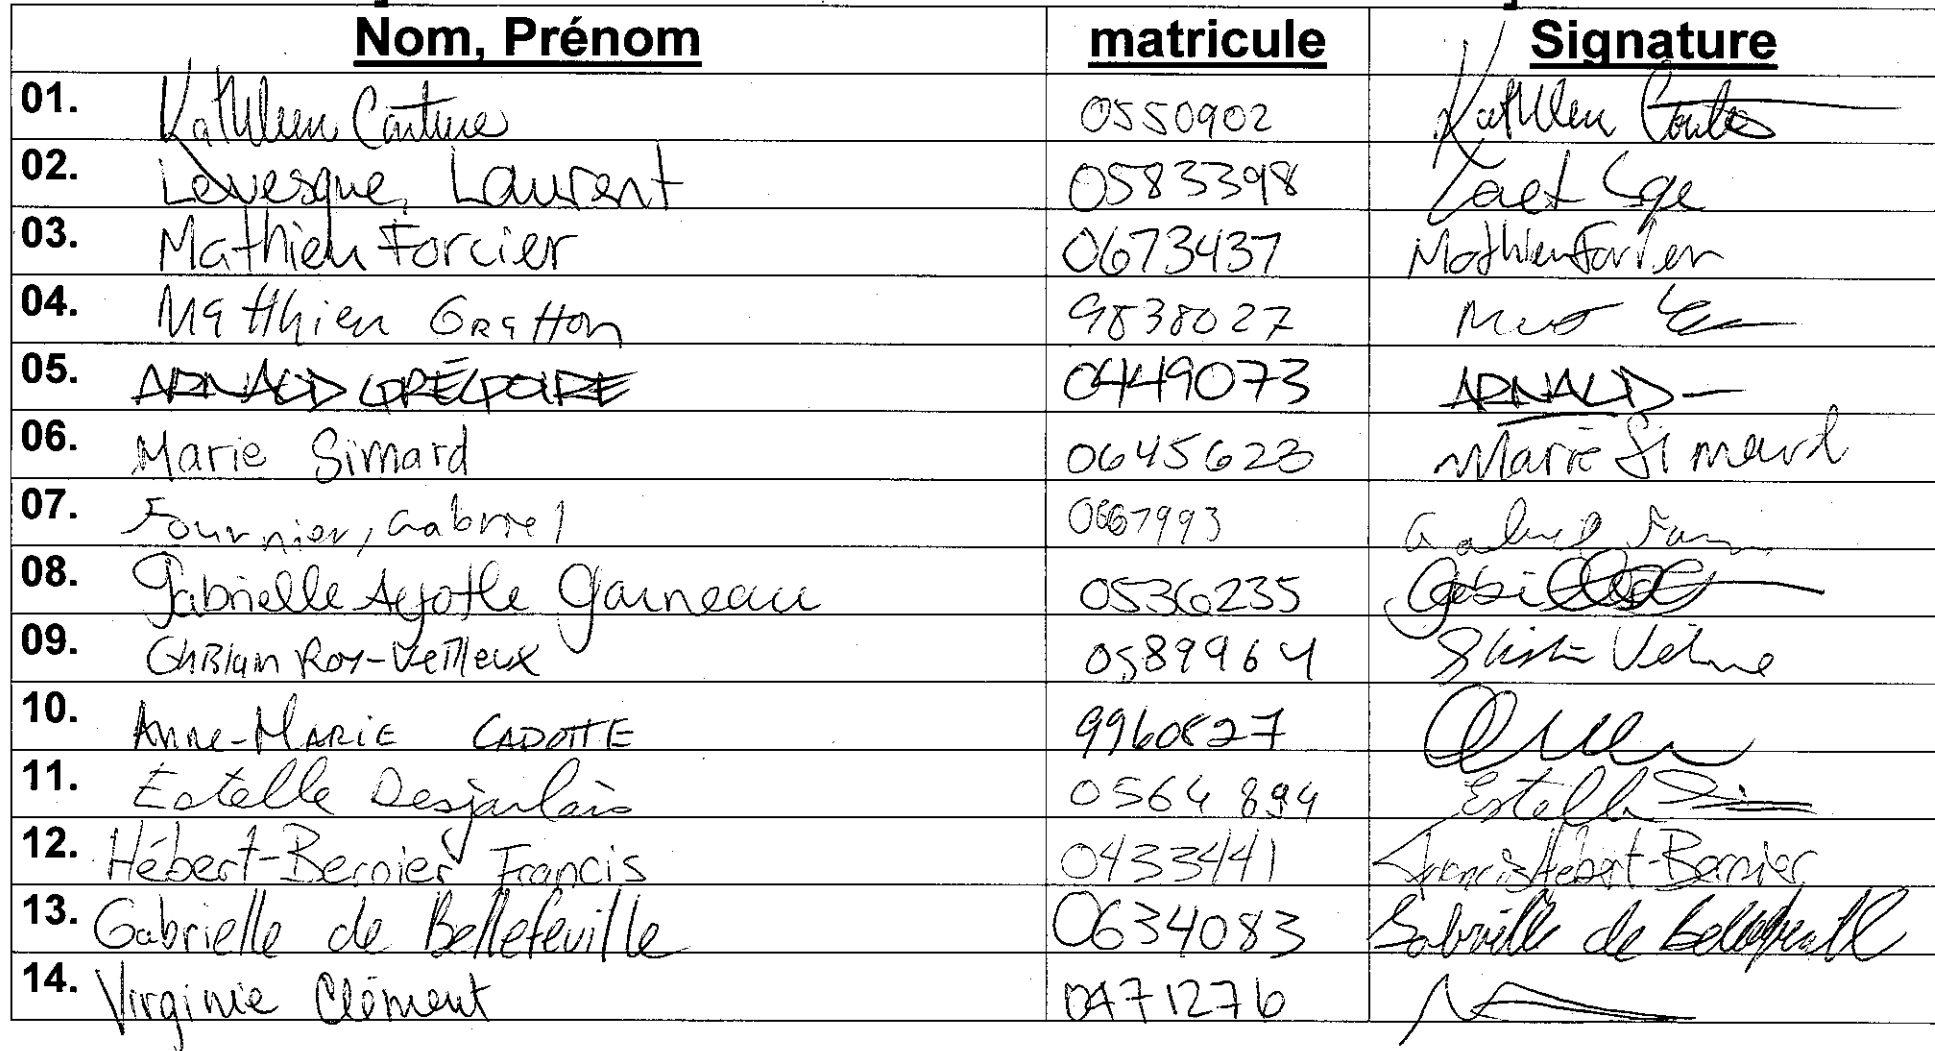 Nom, Prénom matricule Signature
01. Kathleen Couture 0550902 Kathleen
02. Levesque, Laurent 0583398
03. Mathieu Forcier 0673437 Mathieu Forcier
04. Matthieu GRatton 9838027
05. ARNAUD GRÉGOIRE 0449073 ARNAUD
06. Marie Simard 0645623 Marie Simard
07. Fournier, Gabriel 0667993 Gabriel
08. Gabrielle Ayotte Garneau 0536235
09. Ghislain Roy-Veilleux 0589964
10. ANNe-MARiE CADOTTE 9960827
11. Estelle Desjarlais 0564894 Estelle
12. Hébert-Bernier Francis 0433441 Francis Hébert-Bernier
13. Gabrielle de Bellefeuille 0634083 Gabrielle de Bellefeuille
14. Virginie Clément 0471276